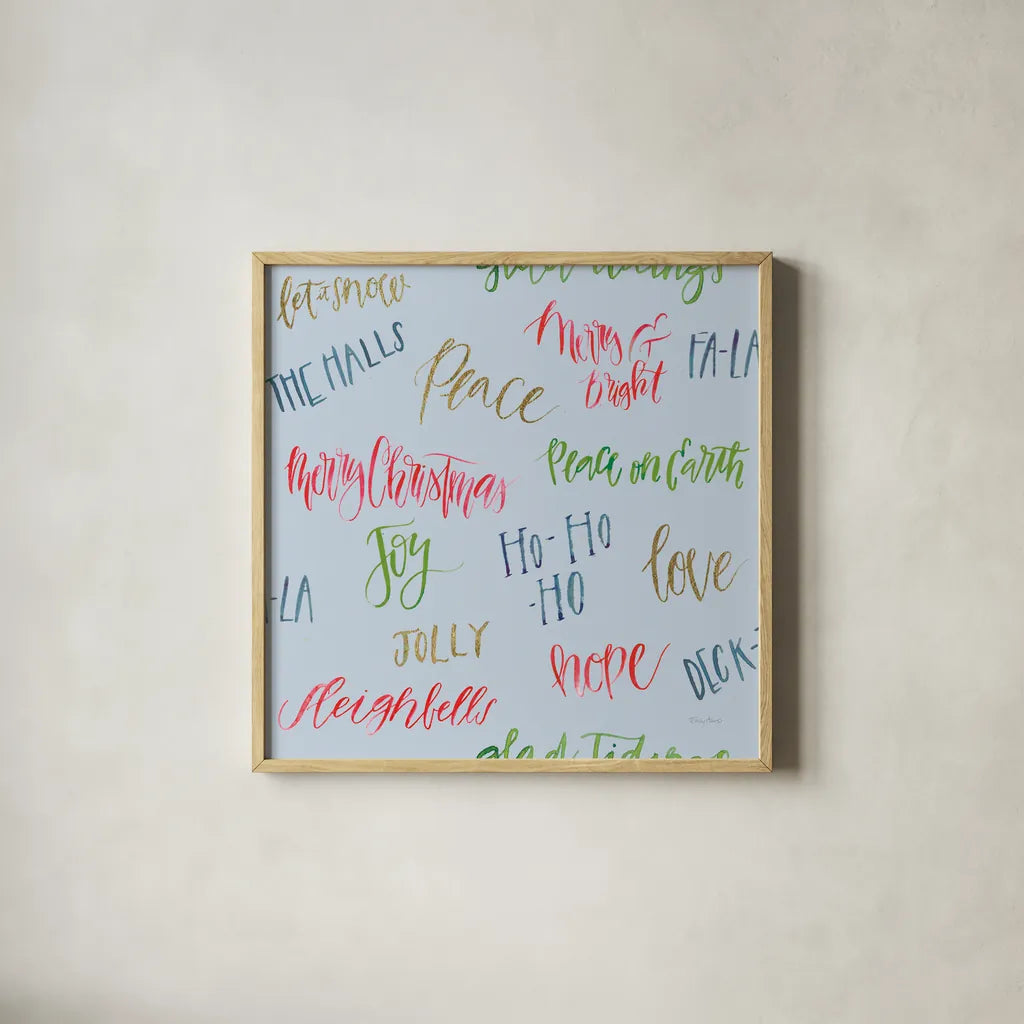 let it snow
glad tidings
THE HALLS
Peace
Merry &
Bright
FA-LA
Merry Christmas
Peace on Earth
Joy
HO-HO
-HO
love
-LA
JOLLY
hope
DECK-
Sleighbells
glad Tidings